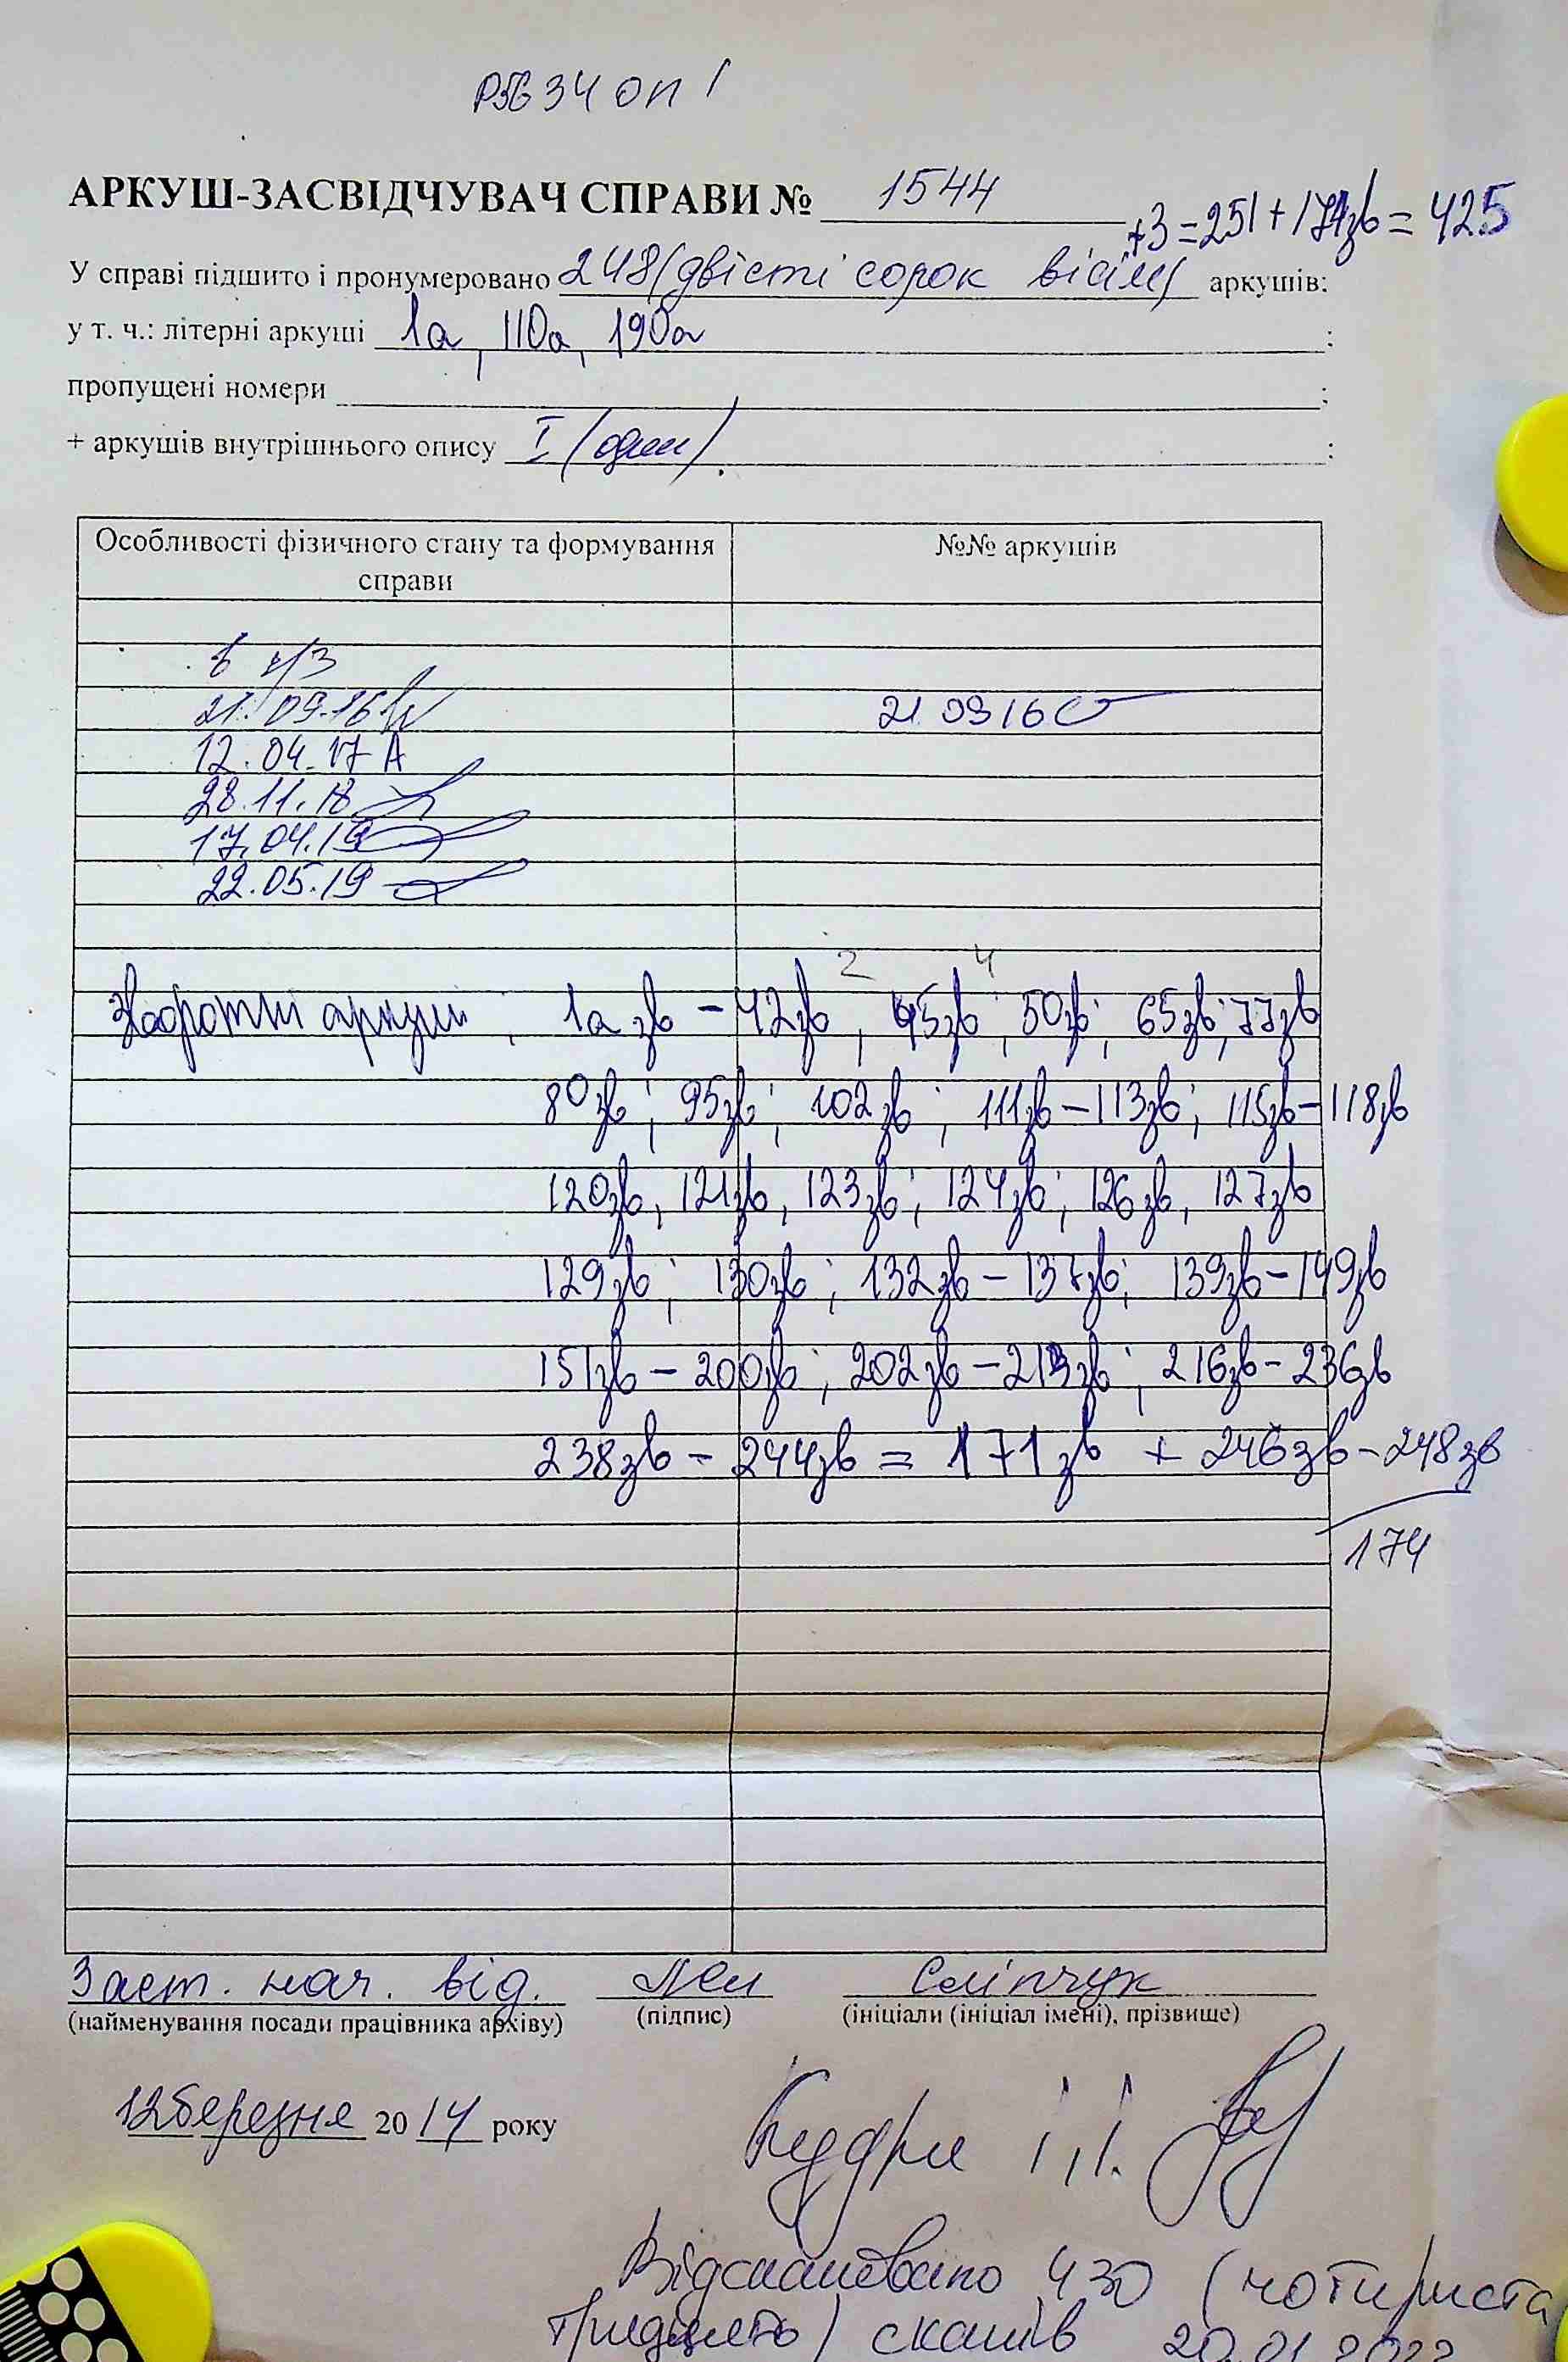 Р5634 оп 1
АРКУШ-ЗАСВІДЧУВАЧ СПРАВИ № 1544
+3 = 251 + 174зв = 425
У справі підшито і пронумеровано 248 (двісті сорок вісім) аркушів;
у т. ч.: літерні аркуші 1а, 110а, 190а ;
пропущені номери ;
+ аркушів внутрішнього опису I (один). ;
Особливості фізичного стану та формування справи
№№ аркушів
в ч/з
21.09.16
21.09 16
12.04.17 А
28.11.18
17.04.19
22.05.19
2 4
Зворотні аркуші; 1а зв – 42зв, 45зв; 50зв; 65зв; 77зв
80зв; 95зв; 102зв; 111зв – 113зв; 115зв – 118зв
120зв, 121зв, 123зв; 124зв; 126зв, 127зв
129зв; 130зв; 132зв – 137зв; 139зв – 149зв
151зв – 200зв; 202зв – 213зв; 216зв – 236зв
238зв – 244зв = 171зв + 246зв – 248зв
174
Заст. нач. від. Сліпчук
(найменування посади працівника архіву) (підпис) (ініціали (ініціал імені), прізвище)
12 березня 20 14 року
Кудри І.І.
Відскановано 430 (чотириста
тридцять) сканів 20.01.2022